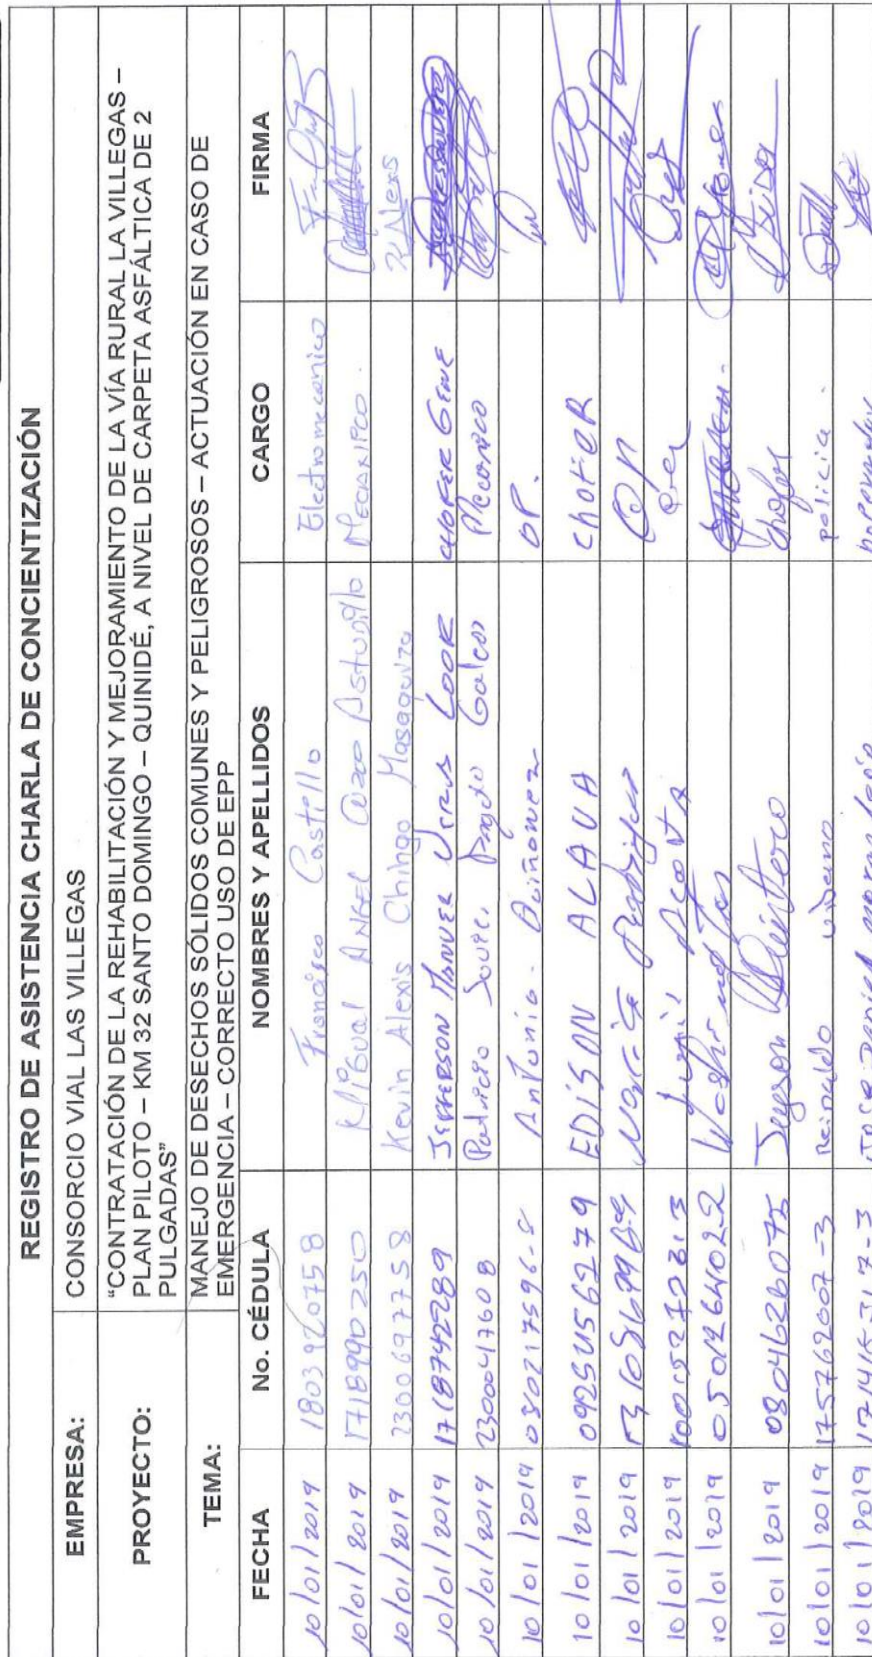 REGISTRO DE ASISTENCIA CHARLA DE CONCIENTIZACIÓN
EMPRESA: CONSORCIO VIAL LAS VILLEGAS
PROYECTO: “CONTRATACIÓN DE LA REHABILITACIÓN Y MEJORAMIENTO DE LA VÍA RURAL LA VILLEGAS –
PLAN PILOTO – KM 32 SANTO DOMINGO – QUINIDÉ, A NIVEL DE CARPETA ASFÁLTICA DE 2
PULGADAS”
TEMA: MANEJO DE DESECHOS SÓLIDOS COMUNES Y PELIGROSOS – ACTUACIÓN EN CASO DE
EMERGENCIA – CORRECTO USO DE EPP
FECHA No. CÉDULA NOMBRES Y APELLIDOS CARGO FIRMA
10/01/2019 1803920758 Francisco Castillo Electromecanico
10/01/2019 1718990250 Miguel Angel Cozo Astudillo Mecanico.
10/01/2019 2300697758 Kevin Alexis Chingo Masaquiza Alexis
10/01/2019 1718742289 JEFFERSON MANUEL LOOR CHOFER
10/01/2019 2300047608 Patricio Mecanico
10/01/2019 080217596-5 Antonio. Quiñonez OP.
10/01/2019 0925456279 EDISON ALAVA CHOFER
10/01/2019 OP
10/01/2019 Acosta
10/01/2019 0501264022 Washington
10/01/2019 0804626075 Jeyson Quintero Chofer
10/01/2019 175762007-3 Reinaldo policia.
10/01/2019 171415317-3 Jose Daniel